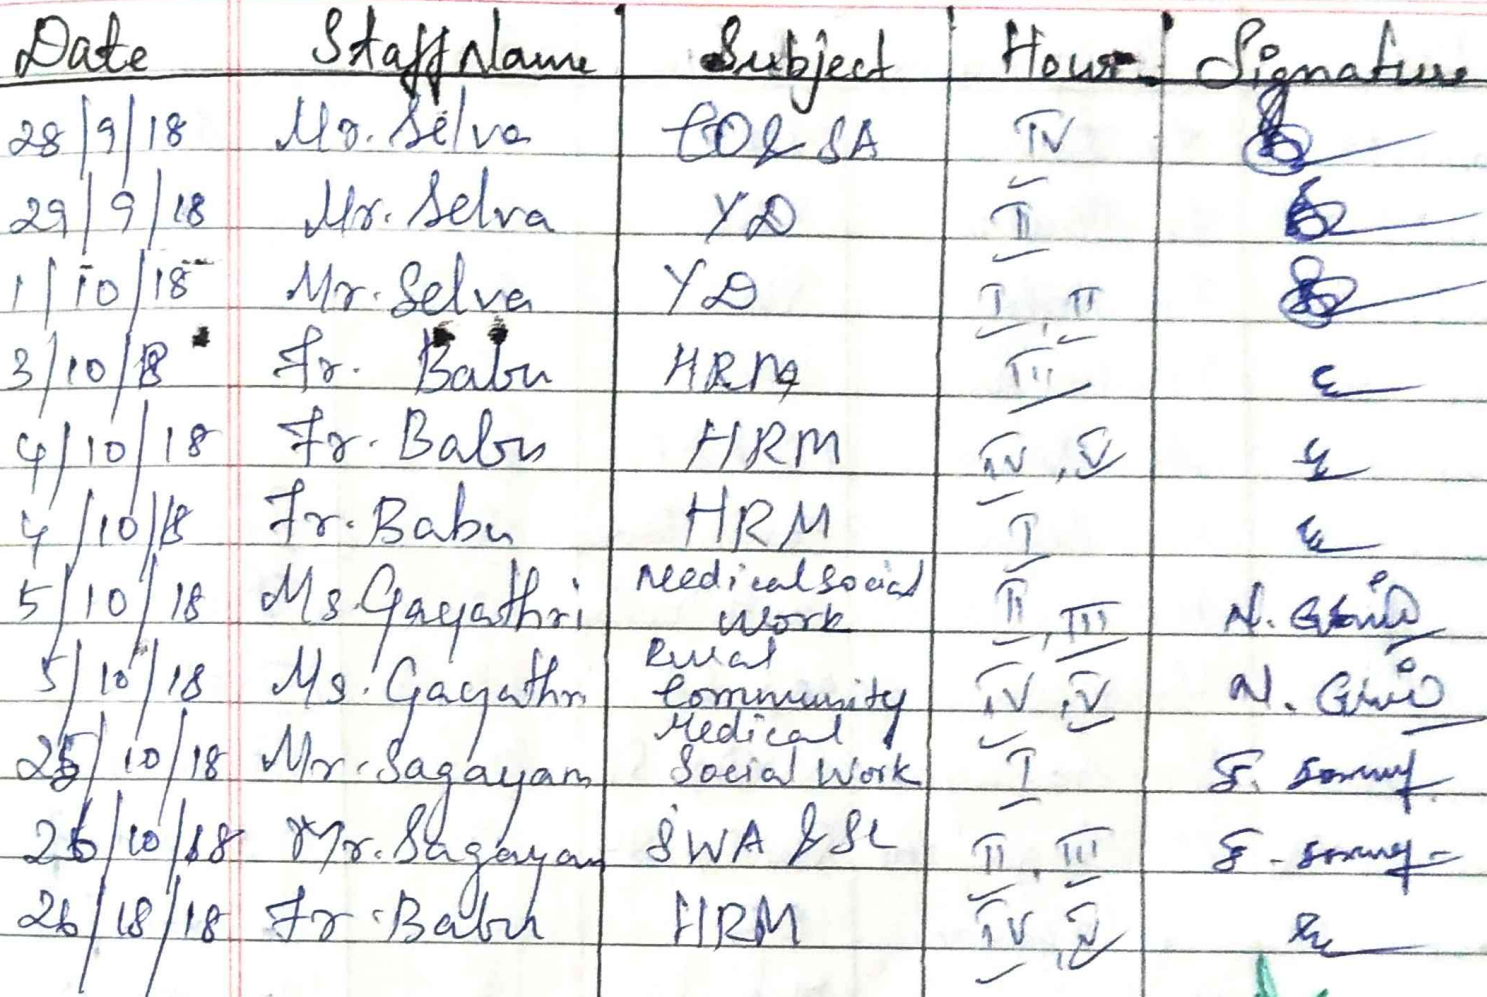 Date Staff Name Subject Hour Signature
28/9/18 Mr. Selva CO & SA IV
29/9/18 Mr. Selva YD II
1/10/18 Mr. Selva YD I, II
3/10/18 Fr. Babu HRM III
4/10/18 Fr. Babu HRM IV, V
4/10/18 Fr. Babu HRM I
5/10/18 Ms. Gayathri Medical Social Work II, III
5/10/18 Ms. Gayathri Rural Community IV, V
25/10/18 Mr. Sagayam Medical Social Work I
26/10/18 Mr. Sagayam SWA & SL II, III
26/18/18 Fr. Babu HRM IV, V